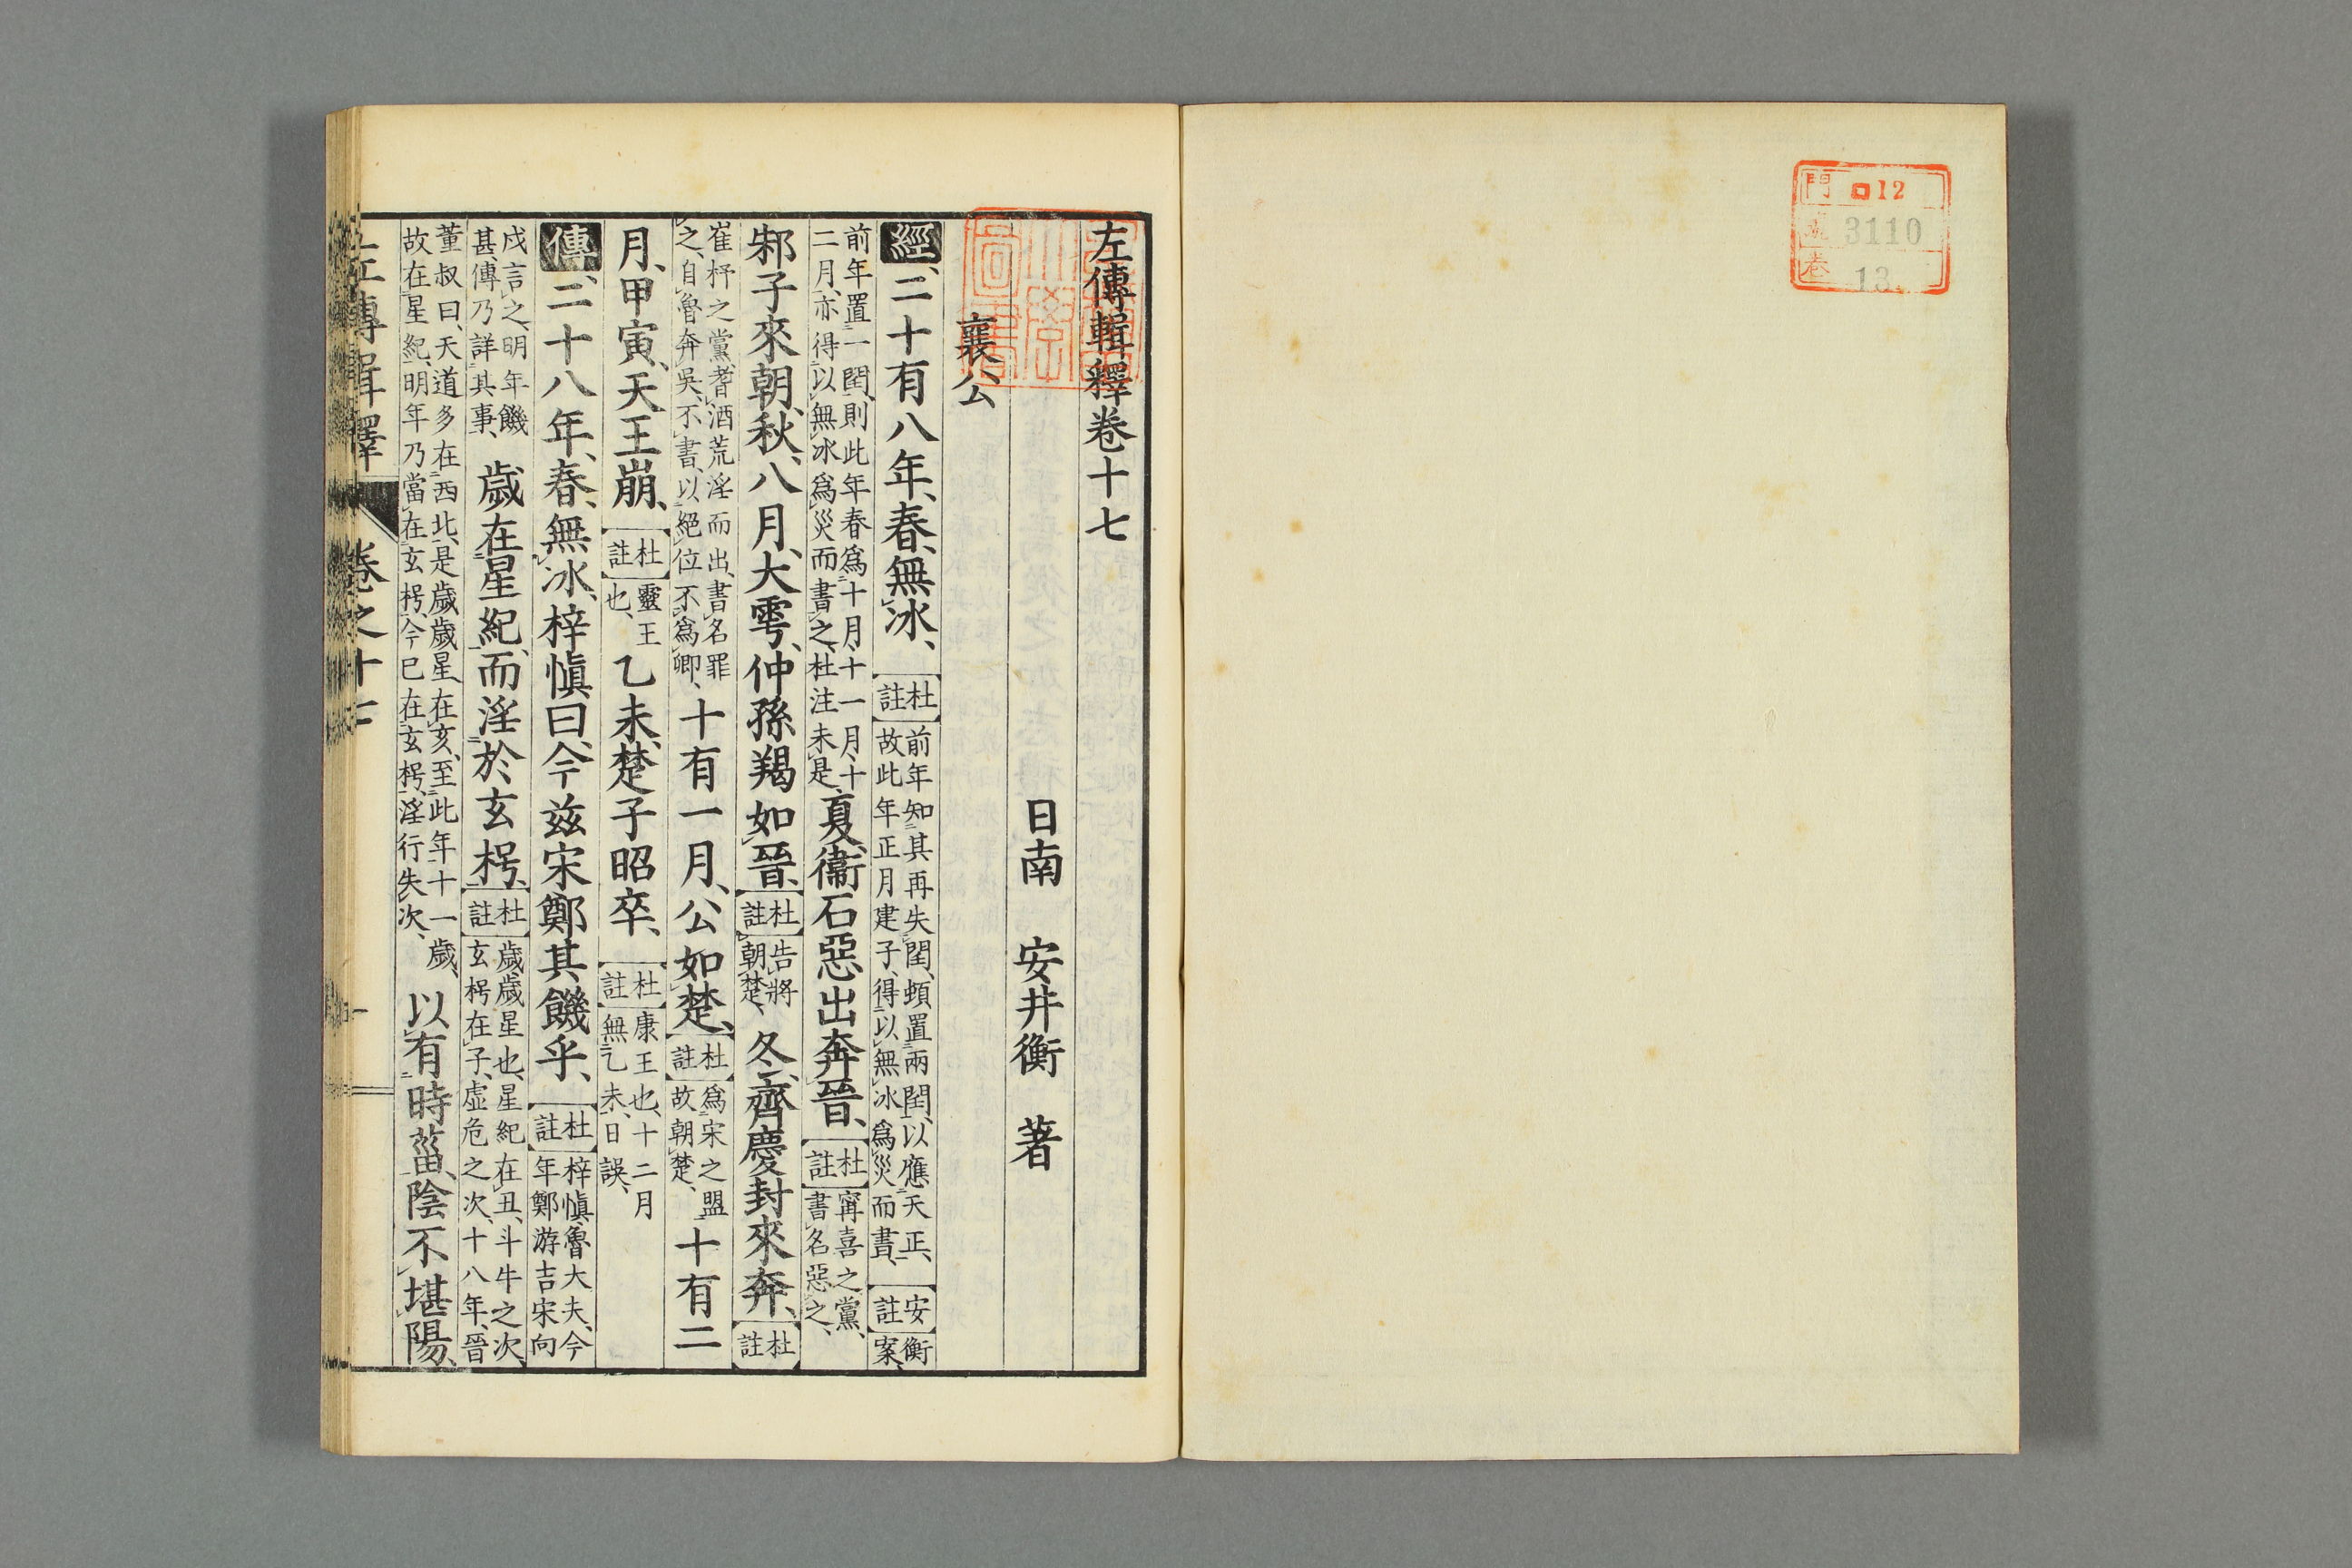 門 ロ12
號 3110
卷 13
左傳輯釋卷十七
日南 安井衡 著
襄公
經、二十有八年、春、無冰、杜註 前年知其再失閏、頓置兩閏、以應天正、故此年正月建子、得以無冰爲災而書、安註 衡案、
前年置一閏、則此年春爲十月、十一月、十二月、亦得以無冰爲災而書之、杜注未是、夏、衞石惡出奔晉、杜註 甯喜之黨、書名惡之、
邾子來朝、秋、八月、大雩、仲孫羯如晉、杜註 告將朝楚、冬、齊慶封來奔、杜註
崔杼之黨、耆酒荒淫而出、書名罪之、自魯奔吳、不書、以絕位不爲卿、十有一月、公如楚、杜註 爲宋之盟故朝楚、十有二
月、甲寅、天王崩、杜註 靈王也、乙未、楚子昭卒、杜註 康王也、十二月無乙未、日誤、
傳、二十八年、春、無冰、梓愼曰、今茲宋鄭其饑乎、杜註 梓愼、魯大夫、今年鄭游吉宋向
戌言之、明年饑甚、傳乃詳其事、歲在星紀、而淫於玄枵、杜註 歲、歲星也、星紀在丑、斗牛之次、玄枵在子、虛危之次、十八年、晉
董叔曰、天道多在西北、是歲歲星在亥、至此年十一歲、故在星紀、明年乃當在玄枵、今已在玄枵、淫行失次、以有時菑、陰不堪陽、
左傳輯釋 卷之十七 一